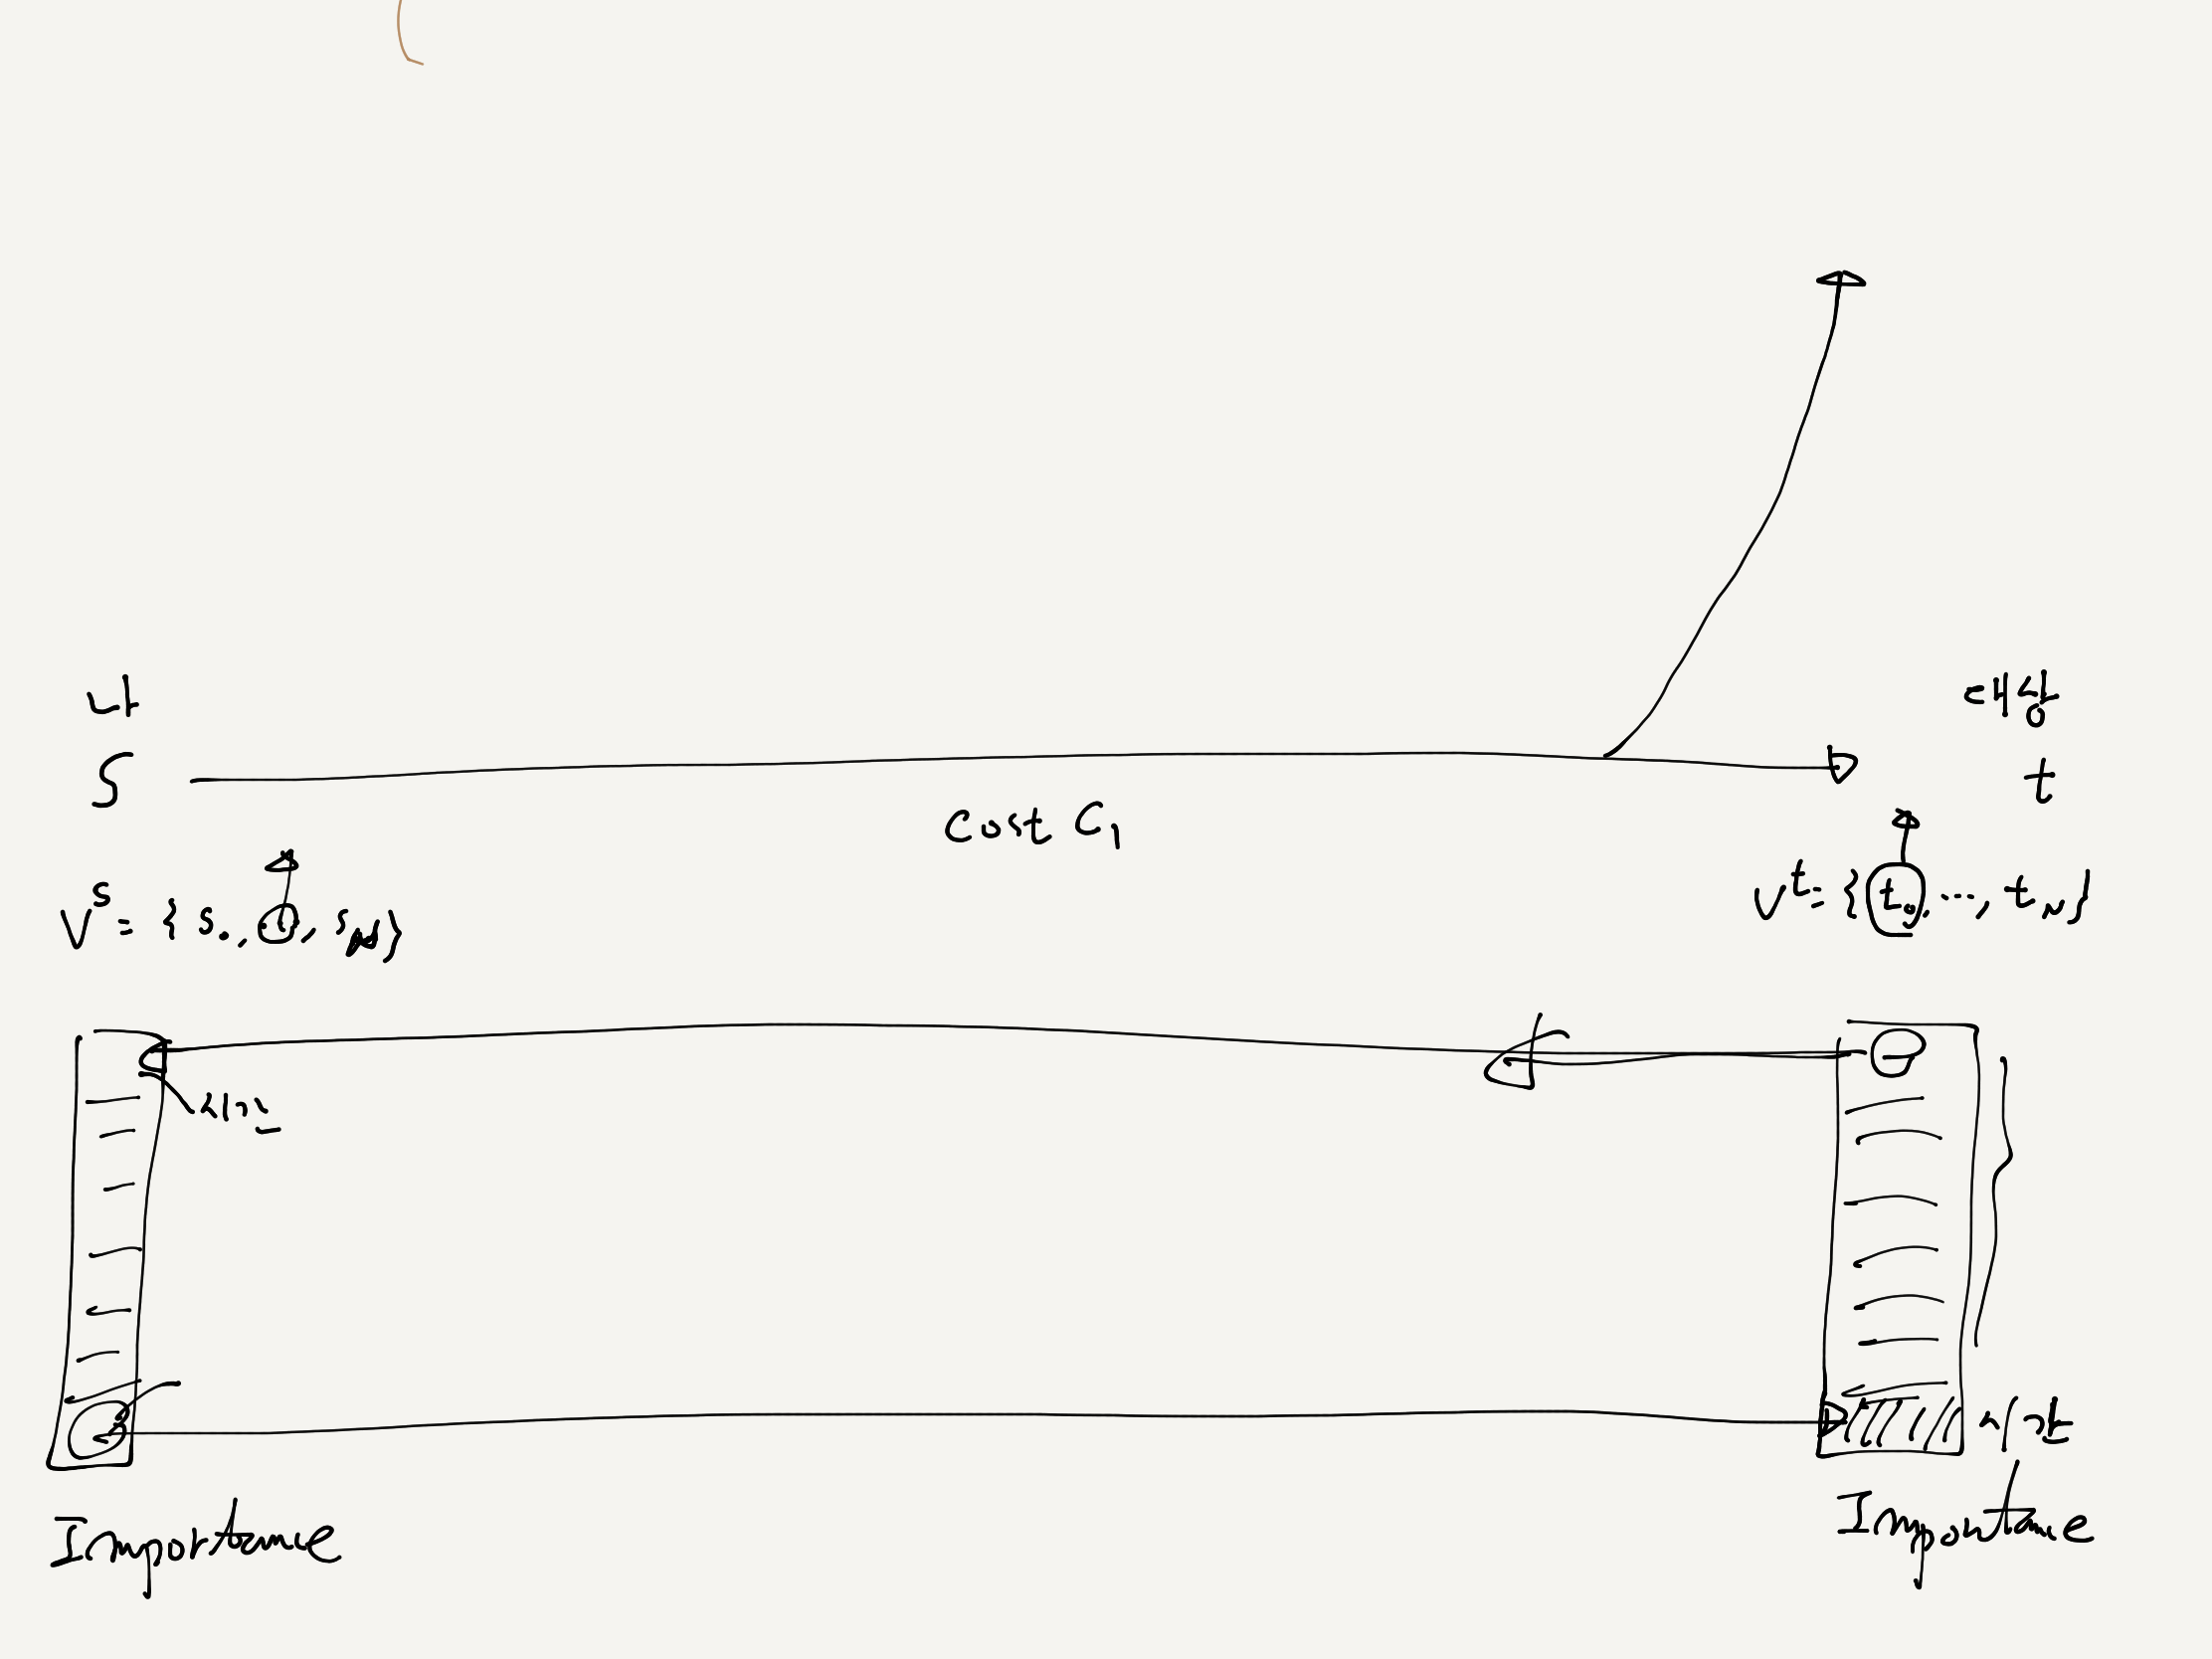 나 대상
S t
Cost C₁
Vˢ = { s₀, , s } Vᵗ = { t₀, ..., t_N }
Importance Importance